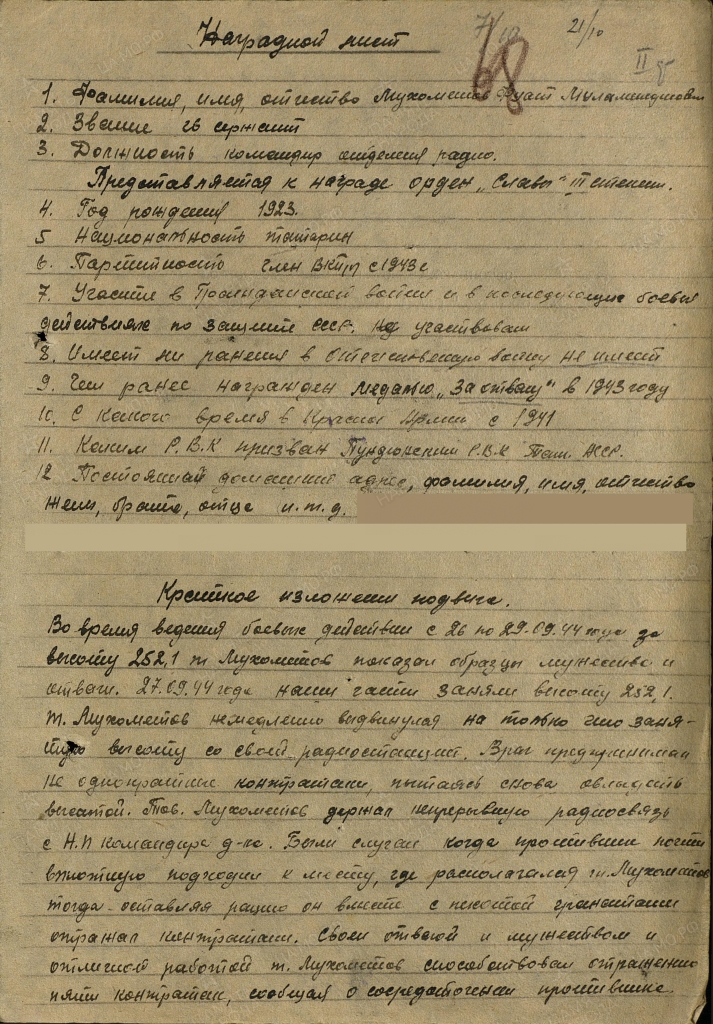 Наградной лист
7/10
68
21/10
II
1. Фамилия, имя, отчество Мухометов Фуат
2. Звание гв сержант
3. Должность командир отделения радио.
Представляется к награде орден „Славы" III степени.
4. Год рождения 1923.
5 Национальность татарин
6. Партийность член ВКПб с 1943 г
7. Участие в Гражданской войне и в последующие боевых
действиях по защите СССР. не участвовал
8. Имеет ли ранения в отечественную войну не имеет
9. Чем ранее награжден медалью „За отвагу" в 1943 году
10. С какого время в Красной Армии с 1941
11. Каким Р.В.К призван Р.В.К Тат. АССР.
12 Постоянный домашний адрес, фамилия, имя, отчество
жены, брата, отца и.т.д.
Краткое изложение подвига.
Во время ведения боевых действии с 26 по 29.09.44 года за
высоту 252,1 т. Мухометов показал образцы мужества и
отваги. 27.09.44 года наши части заняли высоту 252,1.
т. Мухометов немедленно выдвинулся на только что заня-
тую высоту со своей радиостанцией. Враг предпринимал
не однократные контратаки, пытаясь снова овладеть
высотой. Тов. Мухометов держал непрерывную радиосвязь
с Н.П командира д-на. Были случаи когда противник почти
вплотную подходил к месту, где располагался т. Мухометов
тогда оставляя рацию он вместе с пехотой гранатами
отражал контратаки. Своей отвагой и мужеством и
отличной работой т. Мухометов способствовал отражению
пяти контратак, сообщая о сосредоточении противника.